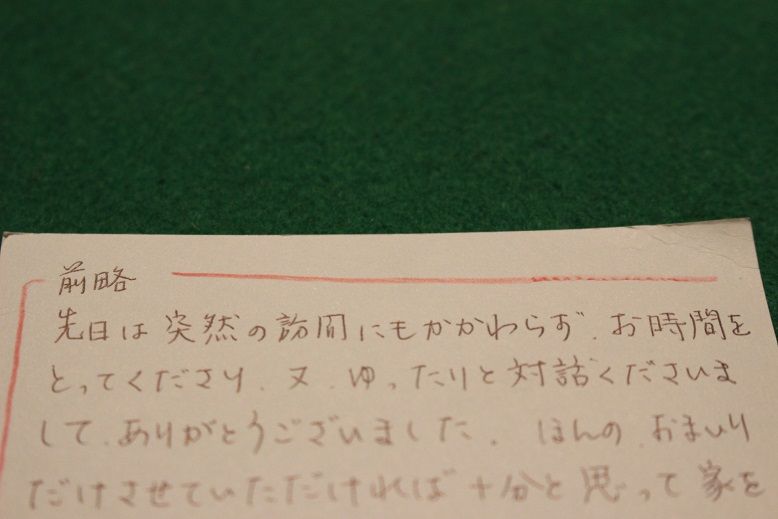 前略
先日は突然の訪問にもかかわらず、お時間を
とってくださり、又、ゆったりと対話くださいま
して、ありがとうございました。ほんの、おまいり
だけさせていただければ十分と思って家を